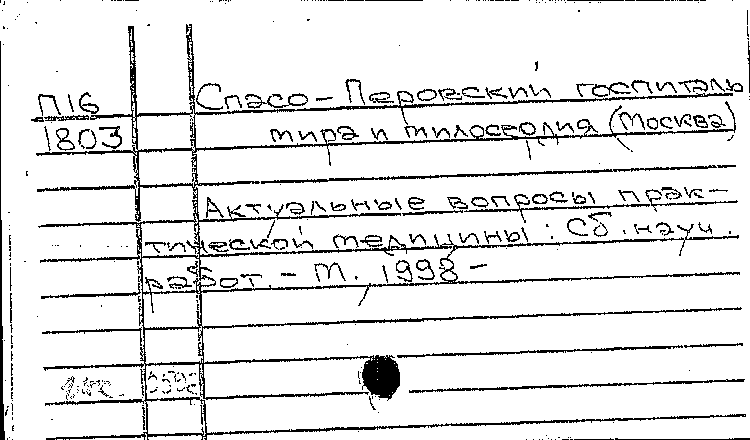 П16
1803
Спасо-Перовский госпиталь
мира и милосердия (Москва)
Актуальные вопросы прак-
тической медицины: Сб. науч.
работ. - М. 1998 -